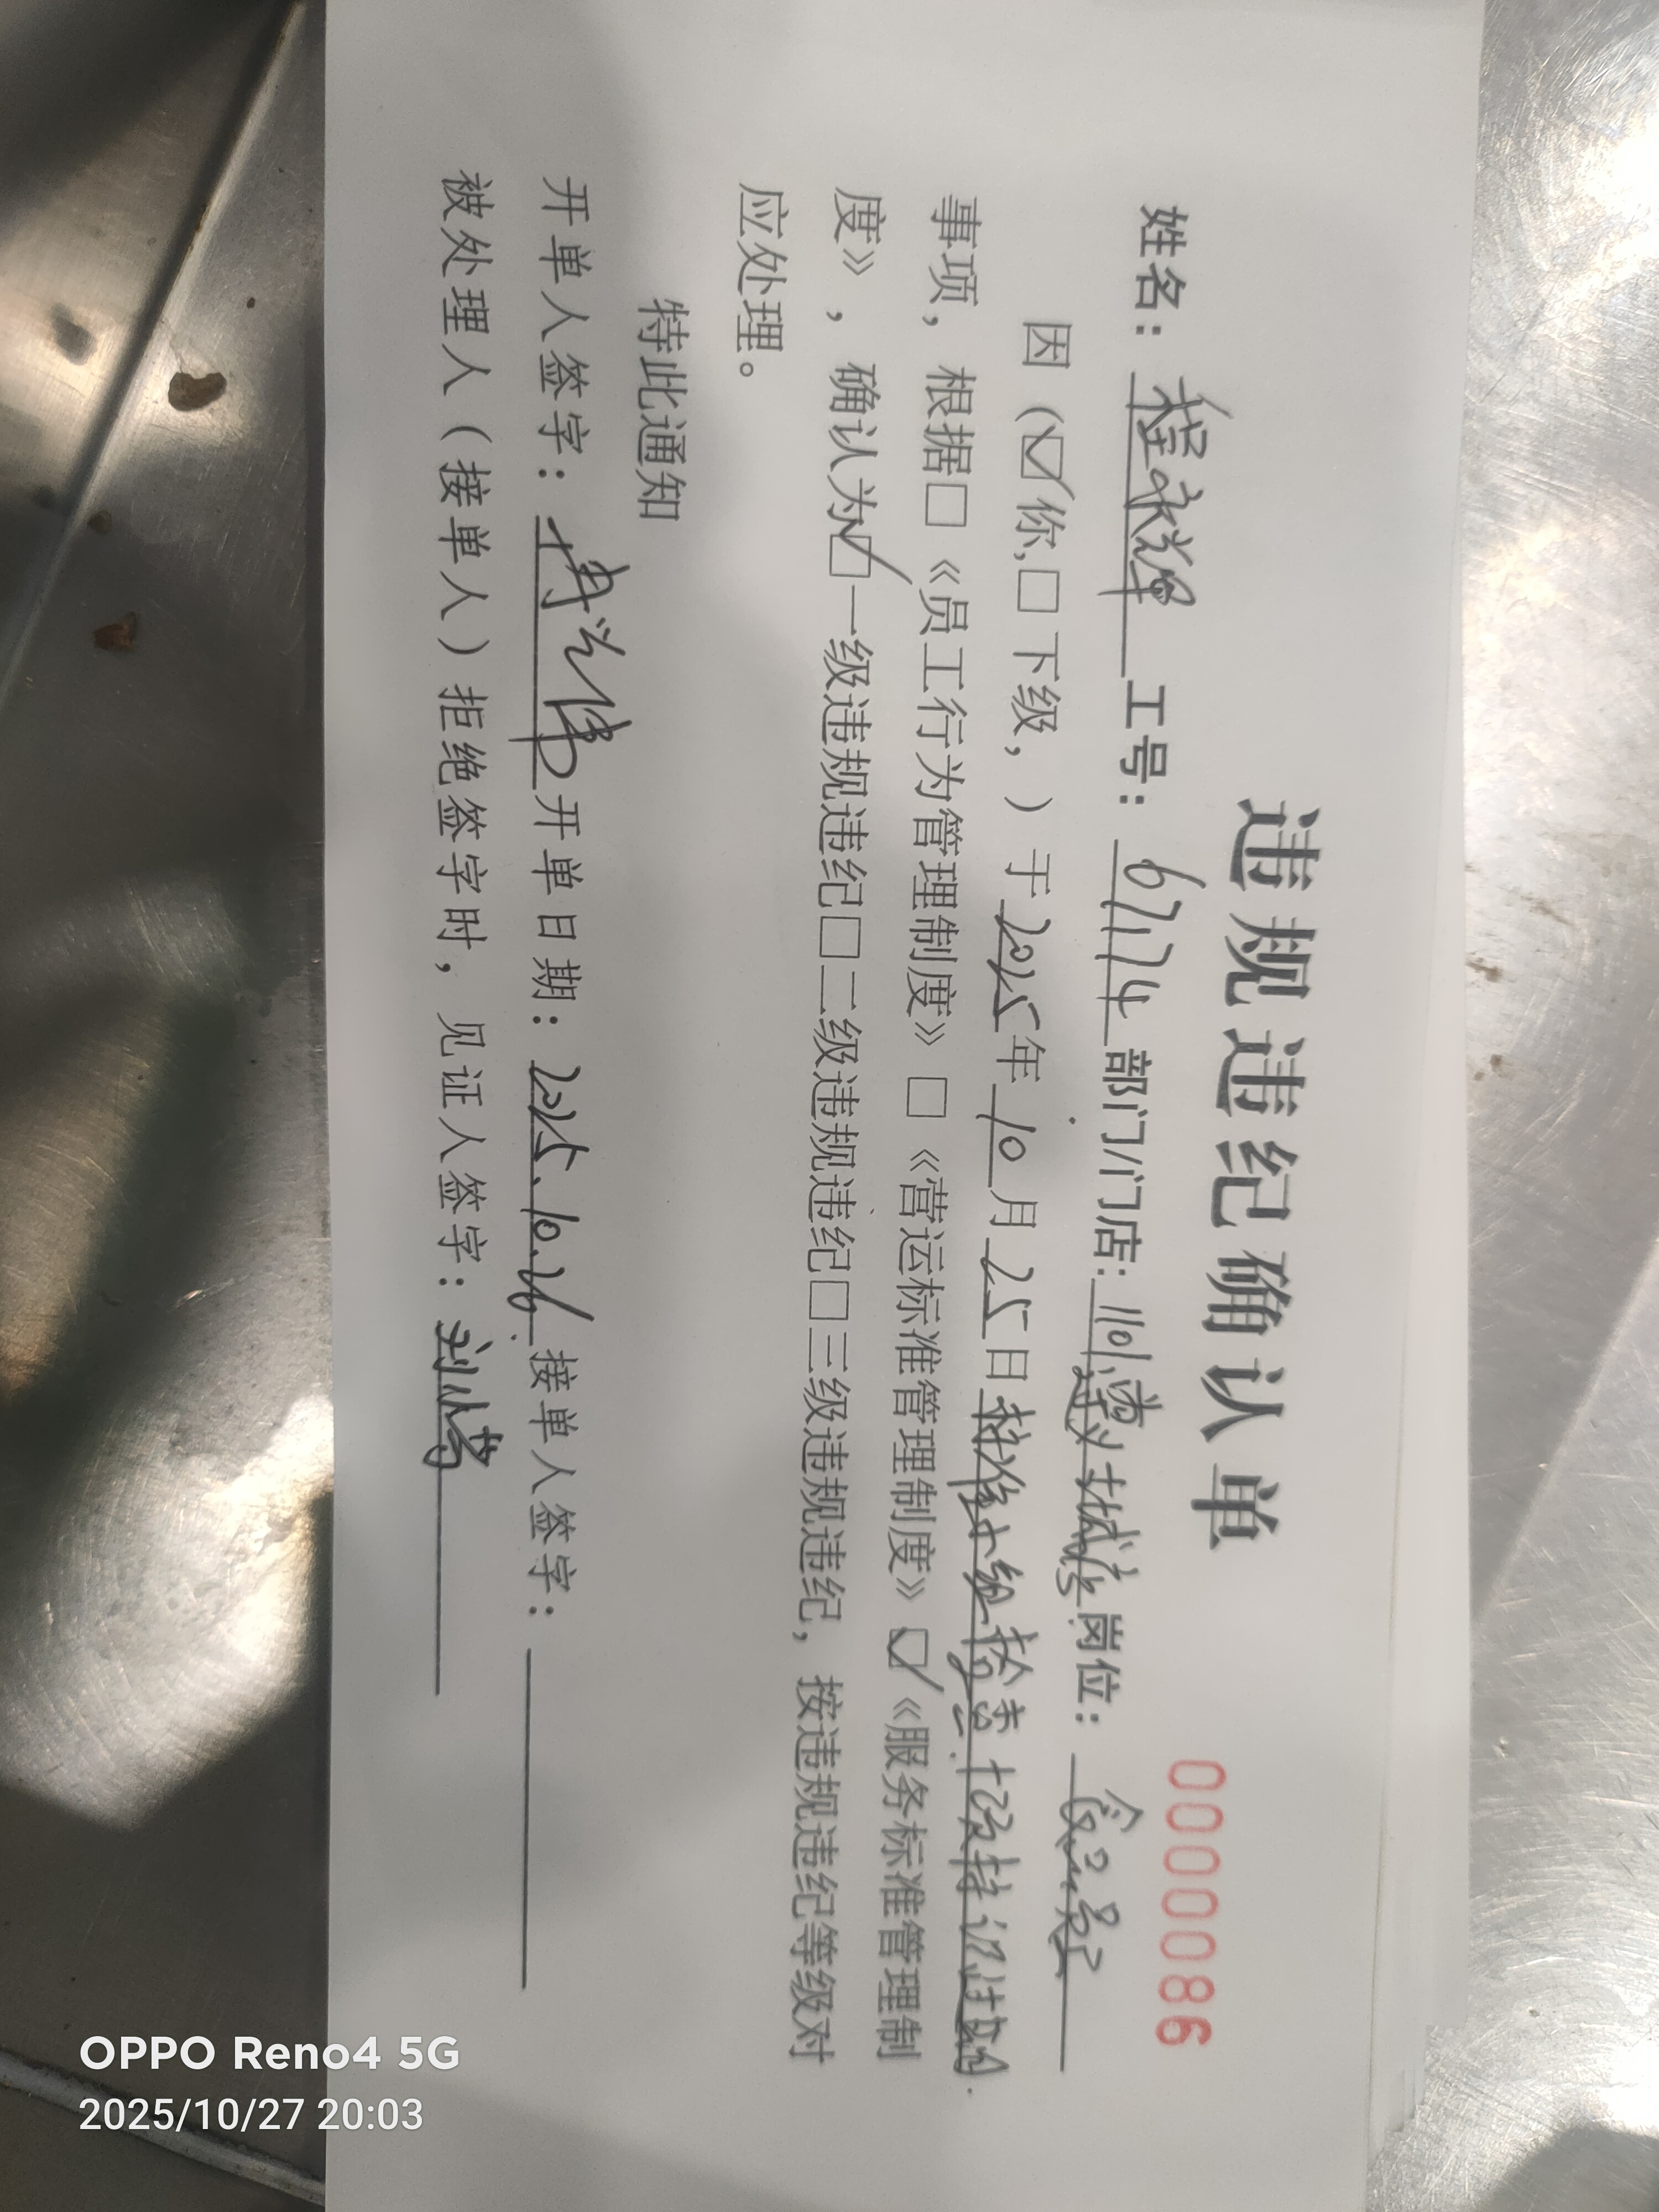 违规违纪确认单
00000086
姓名：程永辉 工号：67174 部门/门店：1101 岗位：
因（☑你,□下级，）于2025年10月25日
事项，根据□《员工行为管理制度》□《营运标准管理制度》☑《服务标准管理制
度》，确认为☑一级违规违纪□二级违规违纪□三级违规违纪，按违规违纪等级对
应处理。
特此通知
开单人签字： 开单日期：2025.10.26 接单人签字：
被处理人（接单人）拒绝签字时，见证人签字：
OPPO Reno4 5G
2025/10/27 20:03